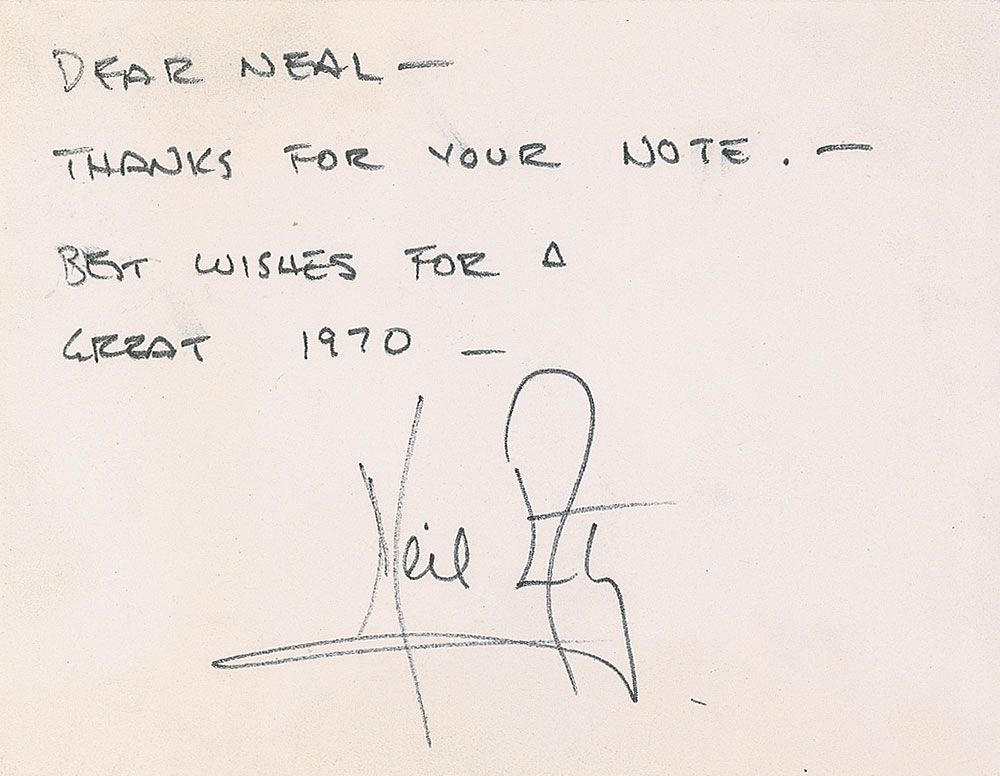 DEAR NEAL —
THANKS FOR YOUR NOTE. —
BEST WISHES FOR A
GREAT 1970 —
Neil